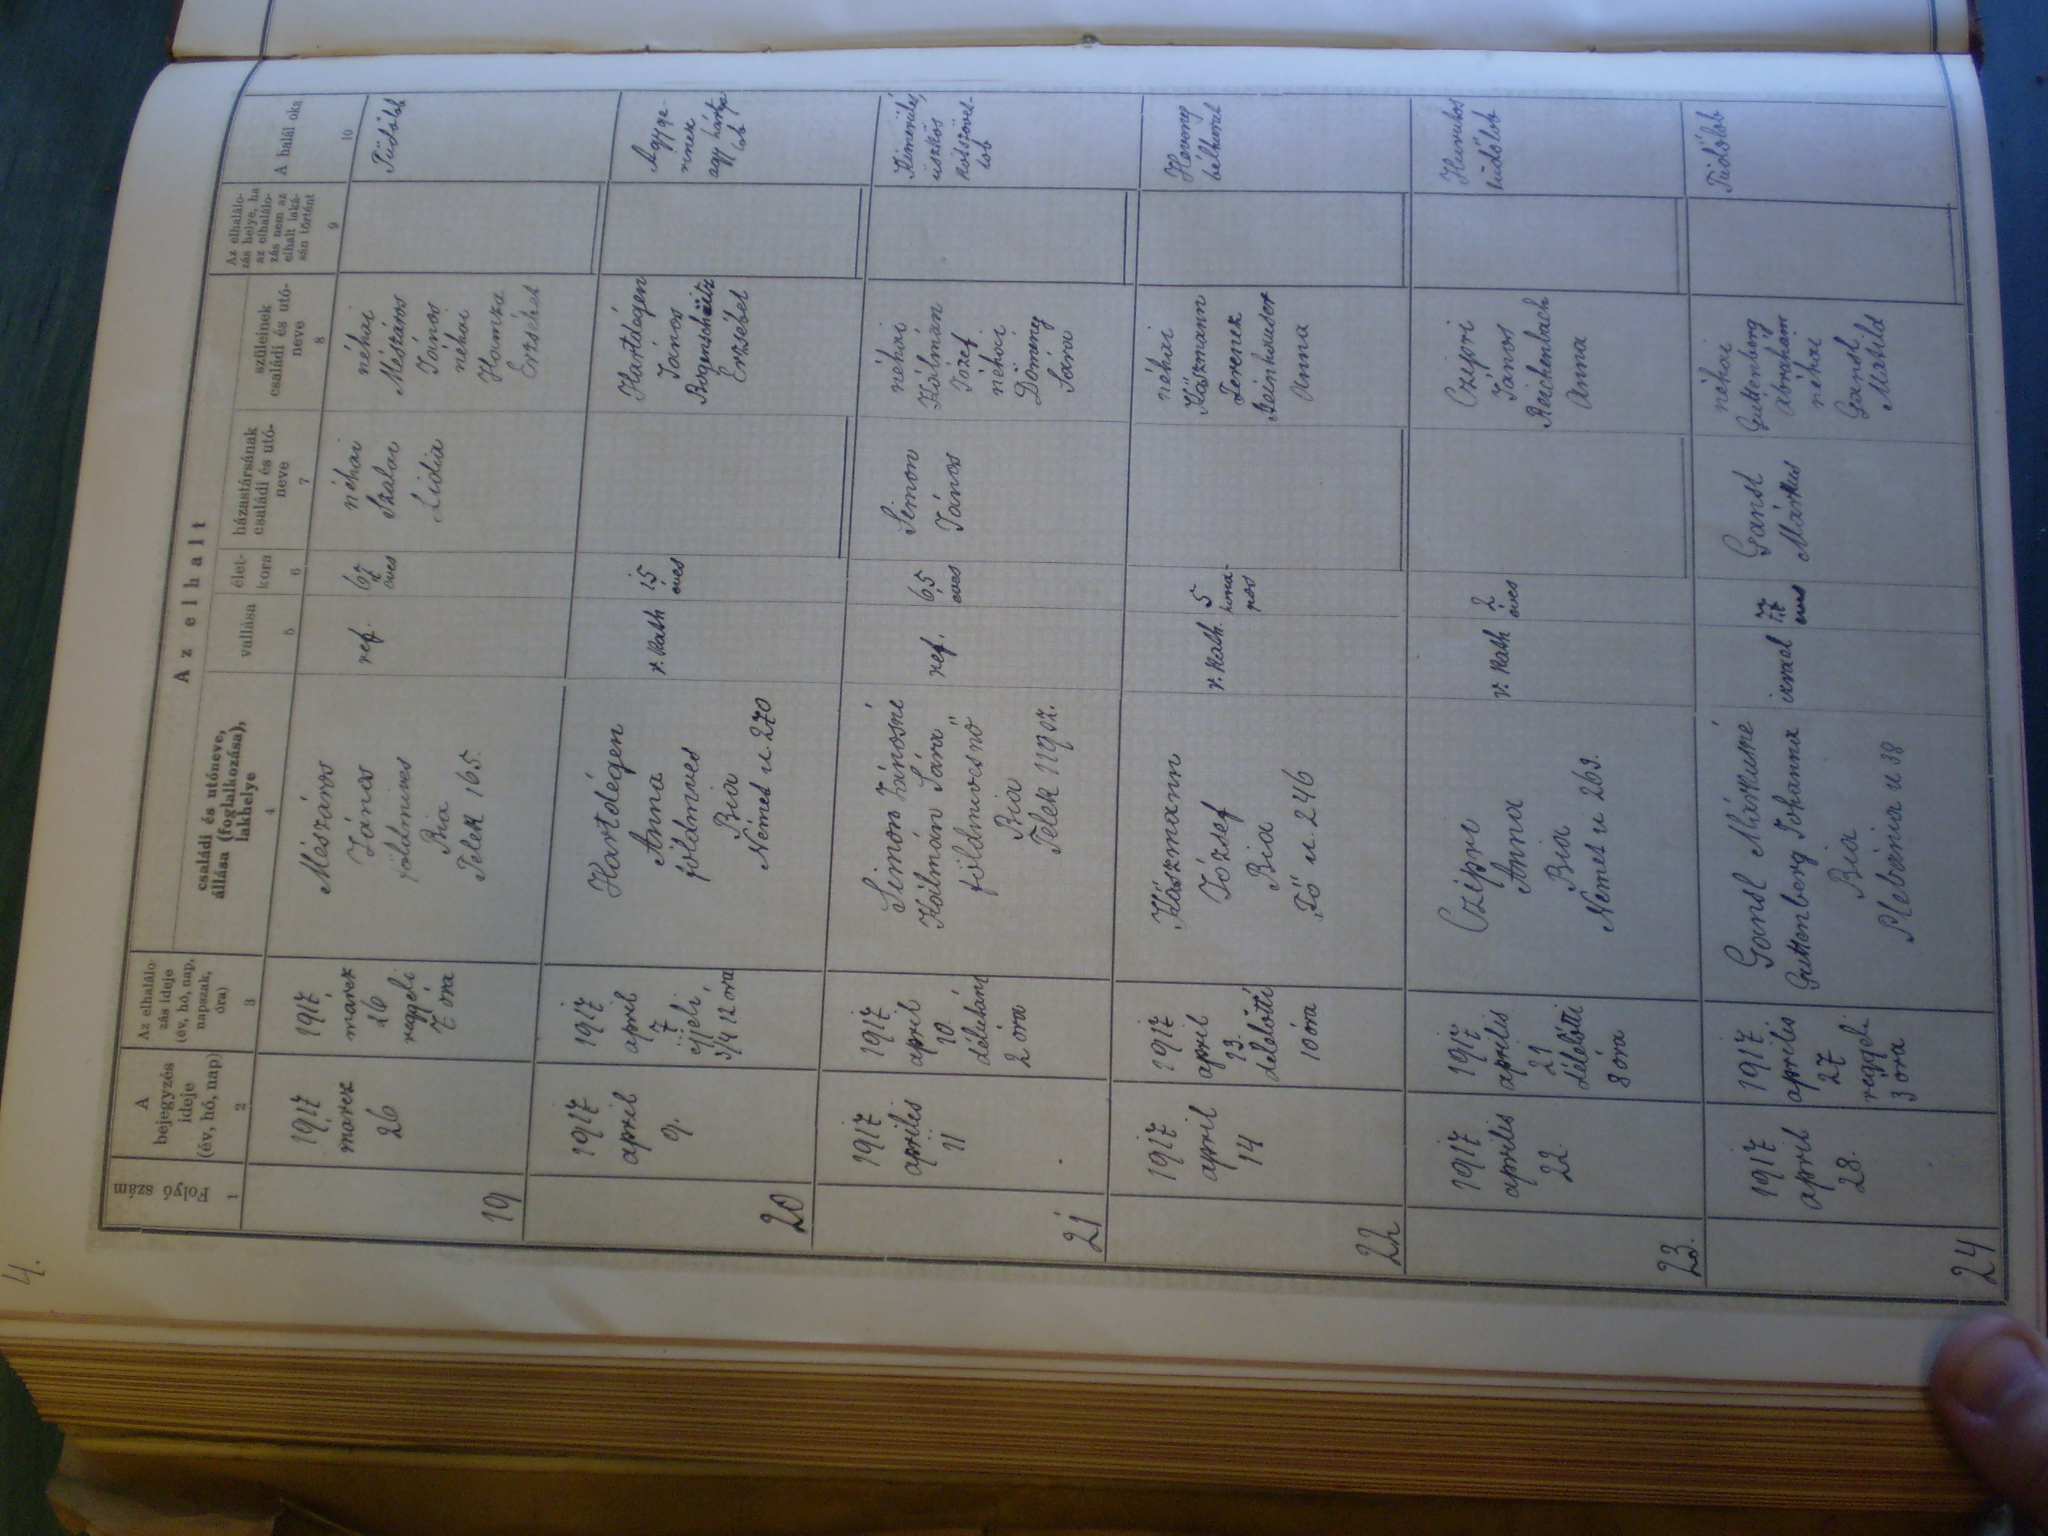 4.
Folyó szám
A bejegyzés ideje (év, hó, nap)
Az elhalálozás ideje (év, hó, nap, napszak, óra)
Az elhalt
családi és utóneve, állása (foglalkozása), lakhelye
vallása
életkora
házastársának családi és utóneve
szüleinek családi és utóneve
Az elhalálozás helye, ha az elhalálozás nem az elhalt lakásán történt
A halál oka
1
2
3
4
5
6
7
8
9
10
19
1917
marcz
26
1917
marcz
26
reggeli
7 óra
Mészáros
János
földmives
Bia
Telek 165.
ref.
67
éves
néhai
Szalai
Lidia
néhai
Mészáros
János
néhai
Erzsébet
Tüdőlob
20
1917
april
9.
1917
april
7
éjjeli,
3/4 12 óra
Hartdégen
Anna
földmives
Bia
Német u. 270
r. kath
15
éves
Hartdégen
János
Erzsébet
21
1917
április
11
1917
april
10.
délutáni
2 óra
Simon Jánosné
Kálmán Sára
földmivesnő
Bia
ref.
65
éves
Simon
János
néhai
Kálmán
József
néhai
Dömény
Sára
Kimerülés,
22
1917
april
14
1917
april
13.
délelőtti
10 óra
József
Bia
Fő u. 246
r. kath.
5
hónapos
néhai
Ferencz
Anna
Heveny
bélhurut
23.
1917
április
22.
1917
április
21
délelőtti
8 óra
Czipri
Anna
Bia
Német u. 263.
r. kath
2
éves
Czipri
János
Reichenbach
Anna
Hurutos
tüdőlob
24
1917
april
28.
1917
április
27
reggeli
3 óra
Gansl Márkusné
Guttenberg Johanna
Bia
Plebánia u 38
izrael
77
éves
Gansl
Márkus
néhai
Guttenberg
Ábrahám
néhai
Gansl
Matild
Tüdőlob